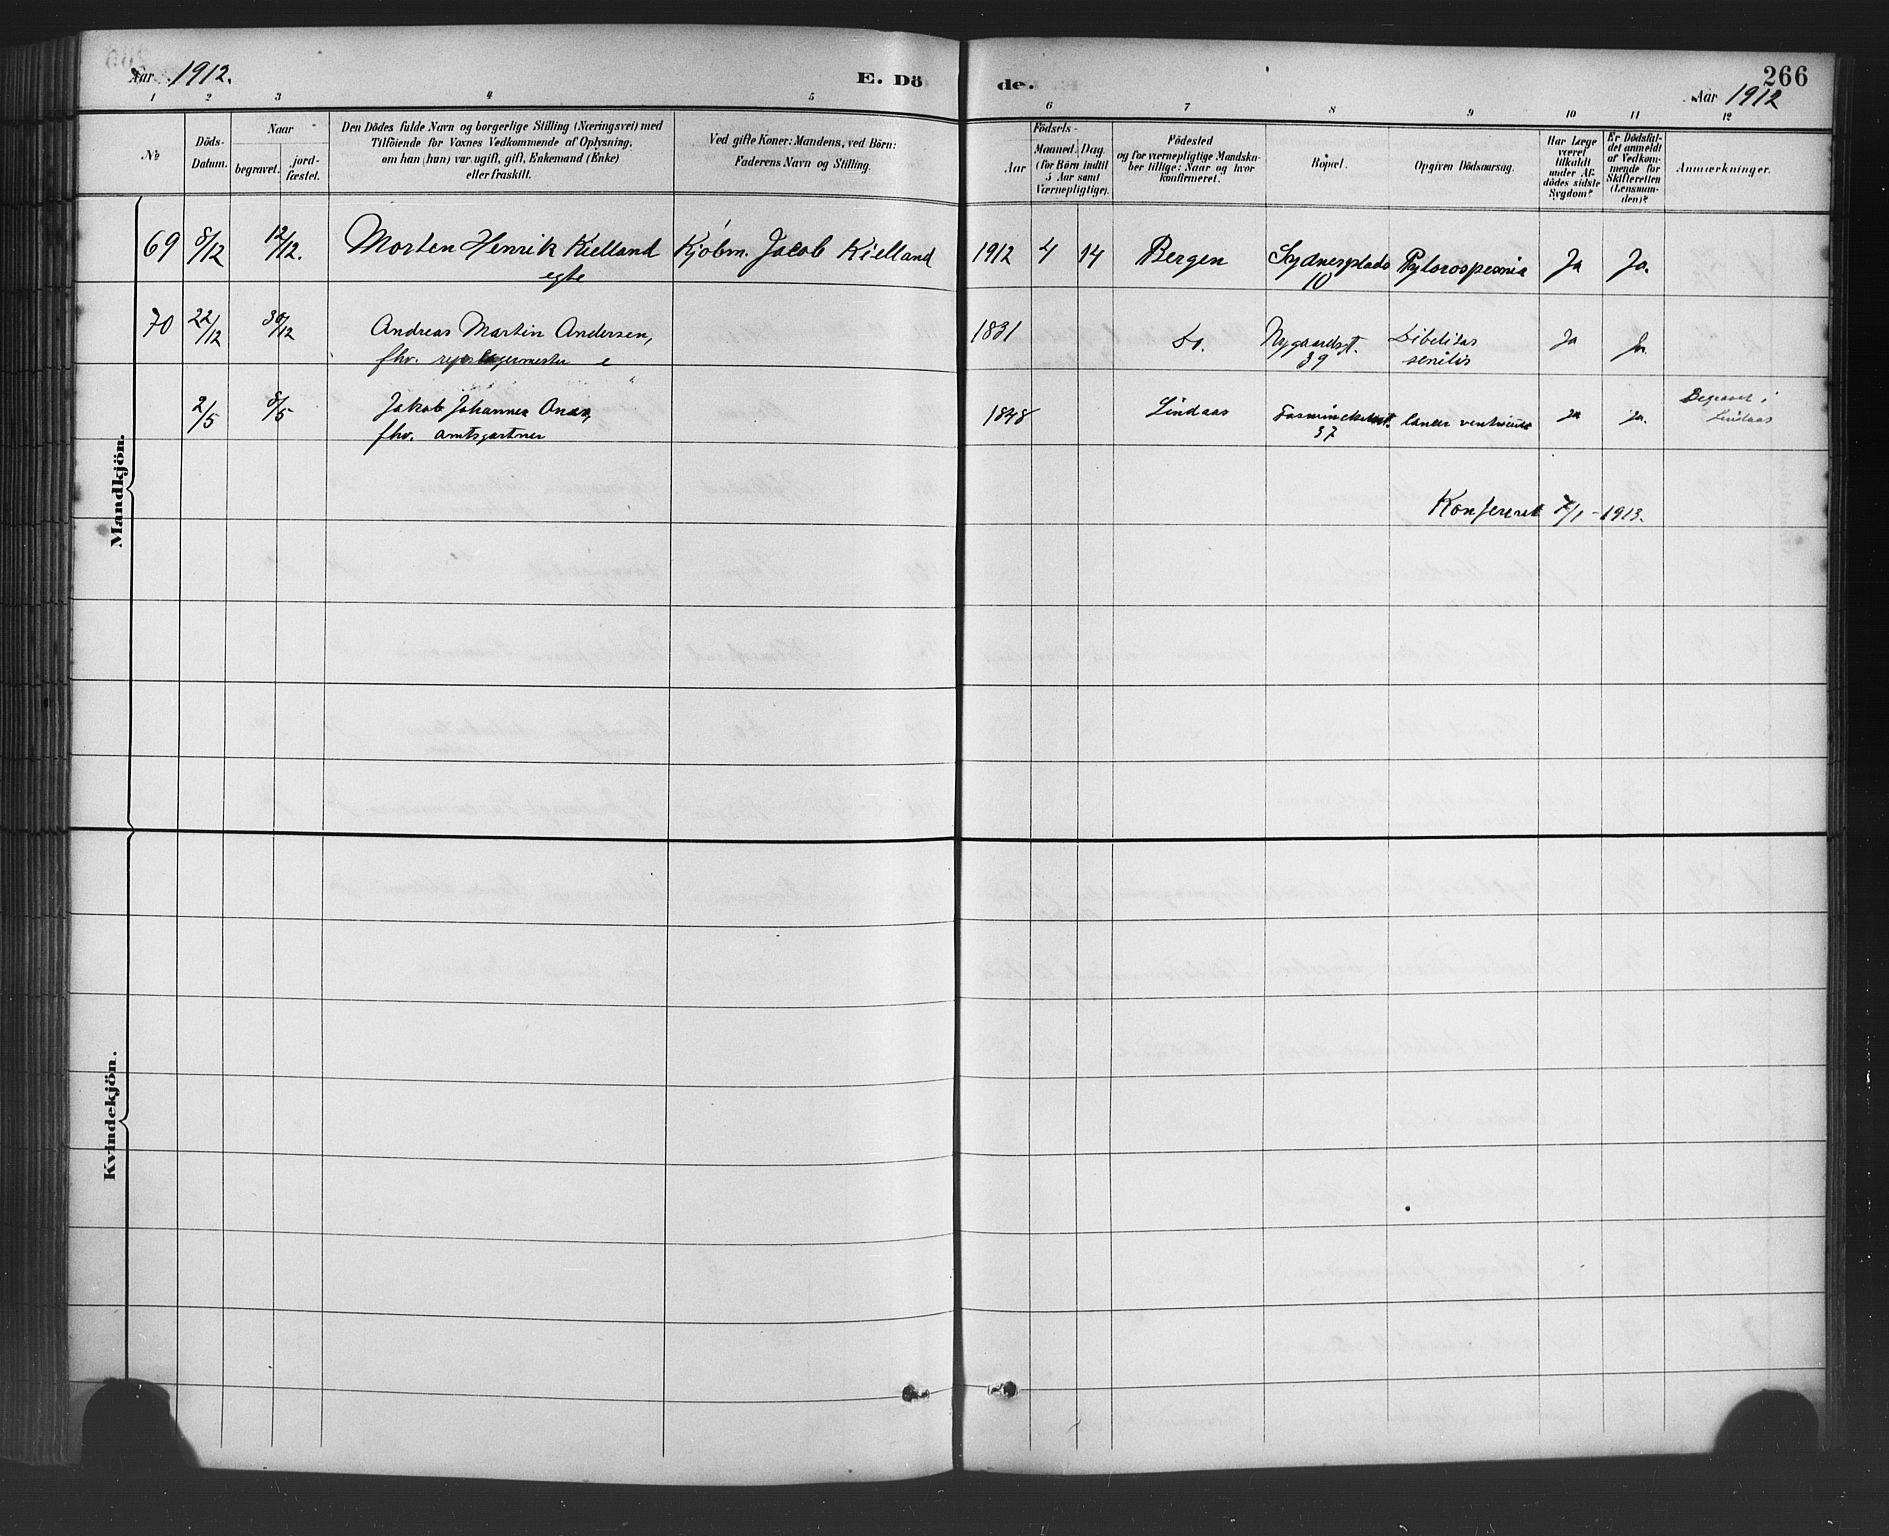 Aar 1912.
E. Dö
de.
266
Aar 1912
1 2 3 4 5 6 7 8 9 10 11 12
№
Döds-Datum.
Naar
begravet.
jord-fæstet.
Den Dödes fulde Navn og borgerlige Stilling (Næringsvei) med
Tilföiende for Voxnes Vedkommende af Oplysning,
om han (hun) var ugift, gift, Enkemand (Enke)
eller fraskilt.
Ved gifte Koner: Mandens, ved Börn:
Faderens Navn og Stilling.
Födsels-
Aar
Maaned. Dag.
(for Börn indtil
5 Aar samt
Værnepligtige).
Födested
og for værnepligtige Mandska-
ber tillige: Naar og hvor
konfirmeret.
Bopæl.
Opgiven Dödsaarsag.
Har Læge
været
tilkaldt
under Af-
dødes sidste
Sygdom?
Er Dödsfal-
det anmeldt
af Vedkom-
mende for
Skifteretten
(Lensman-
den)?
Anmærkninger.
Mandkjön.
69 8/12 12/12. Morten Henrik Kielland Kjöbm. Jacob Kielland 1912 4 14 Bergen Sydnesplads Ja Ja.
egte 10
70 22/12 30/12 Andreas Martin Andersen, 1831 Do. Nygaardsgt. Debilitas Ja Ja.
fhv. e 39 senilis
2/5 8/5 Jakob Johannes 1848 Lindaas cancer Ja Ja. Begravet i
fhv. amtsgartner 37 Lindaas
Konfereret 7/1 - 1913.
Kvindekjön.